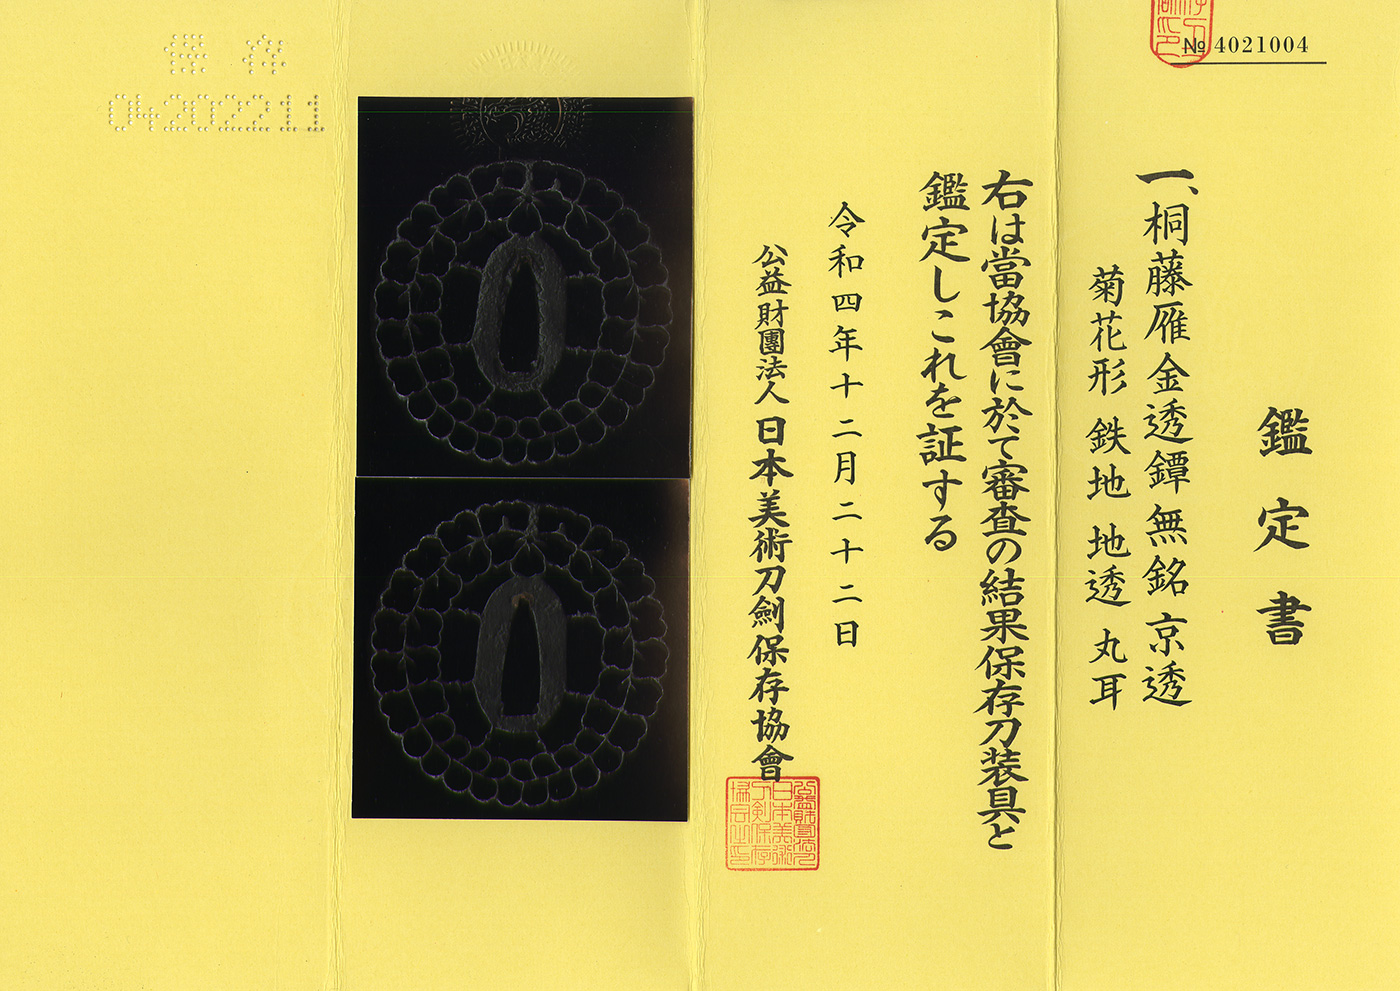 № 4021004
鑑定書
一、桐藤雁金透鐔 無銘 京透
菊花形 鉄地 地透 丸耳
右は當協會に於て審査の結果保存刀装具と
鑑定しこれを証する
令和四年十二月二十二日
公益財團法人 日本美術刀劍保存協會
保存
04202211